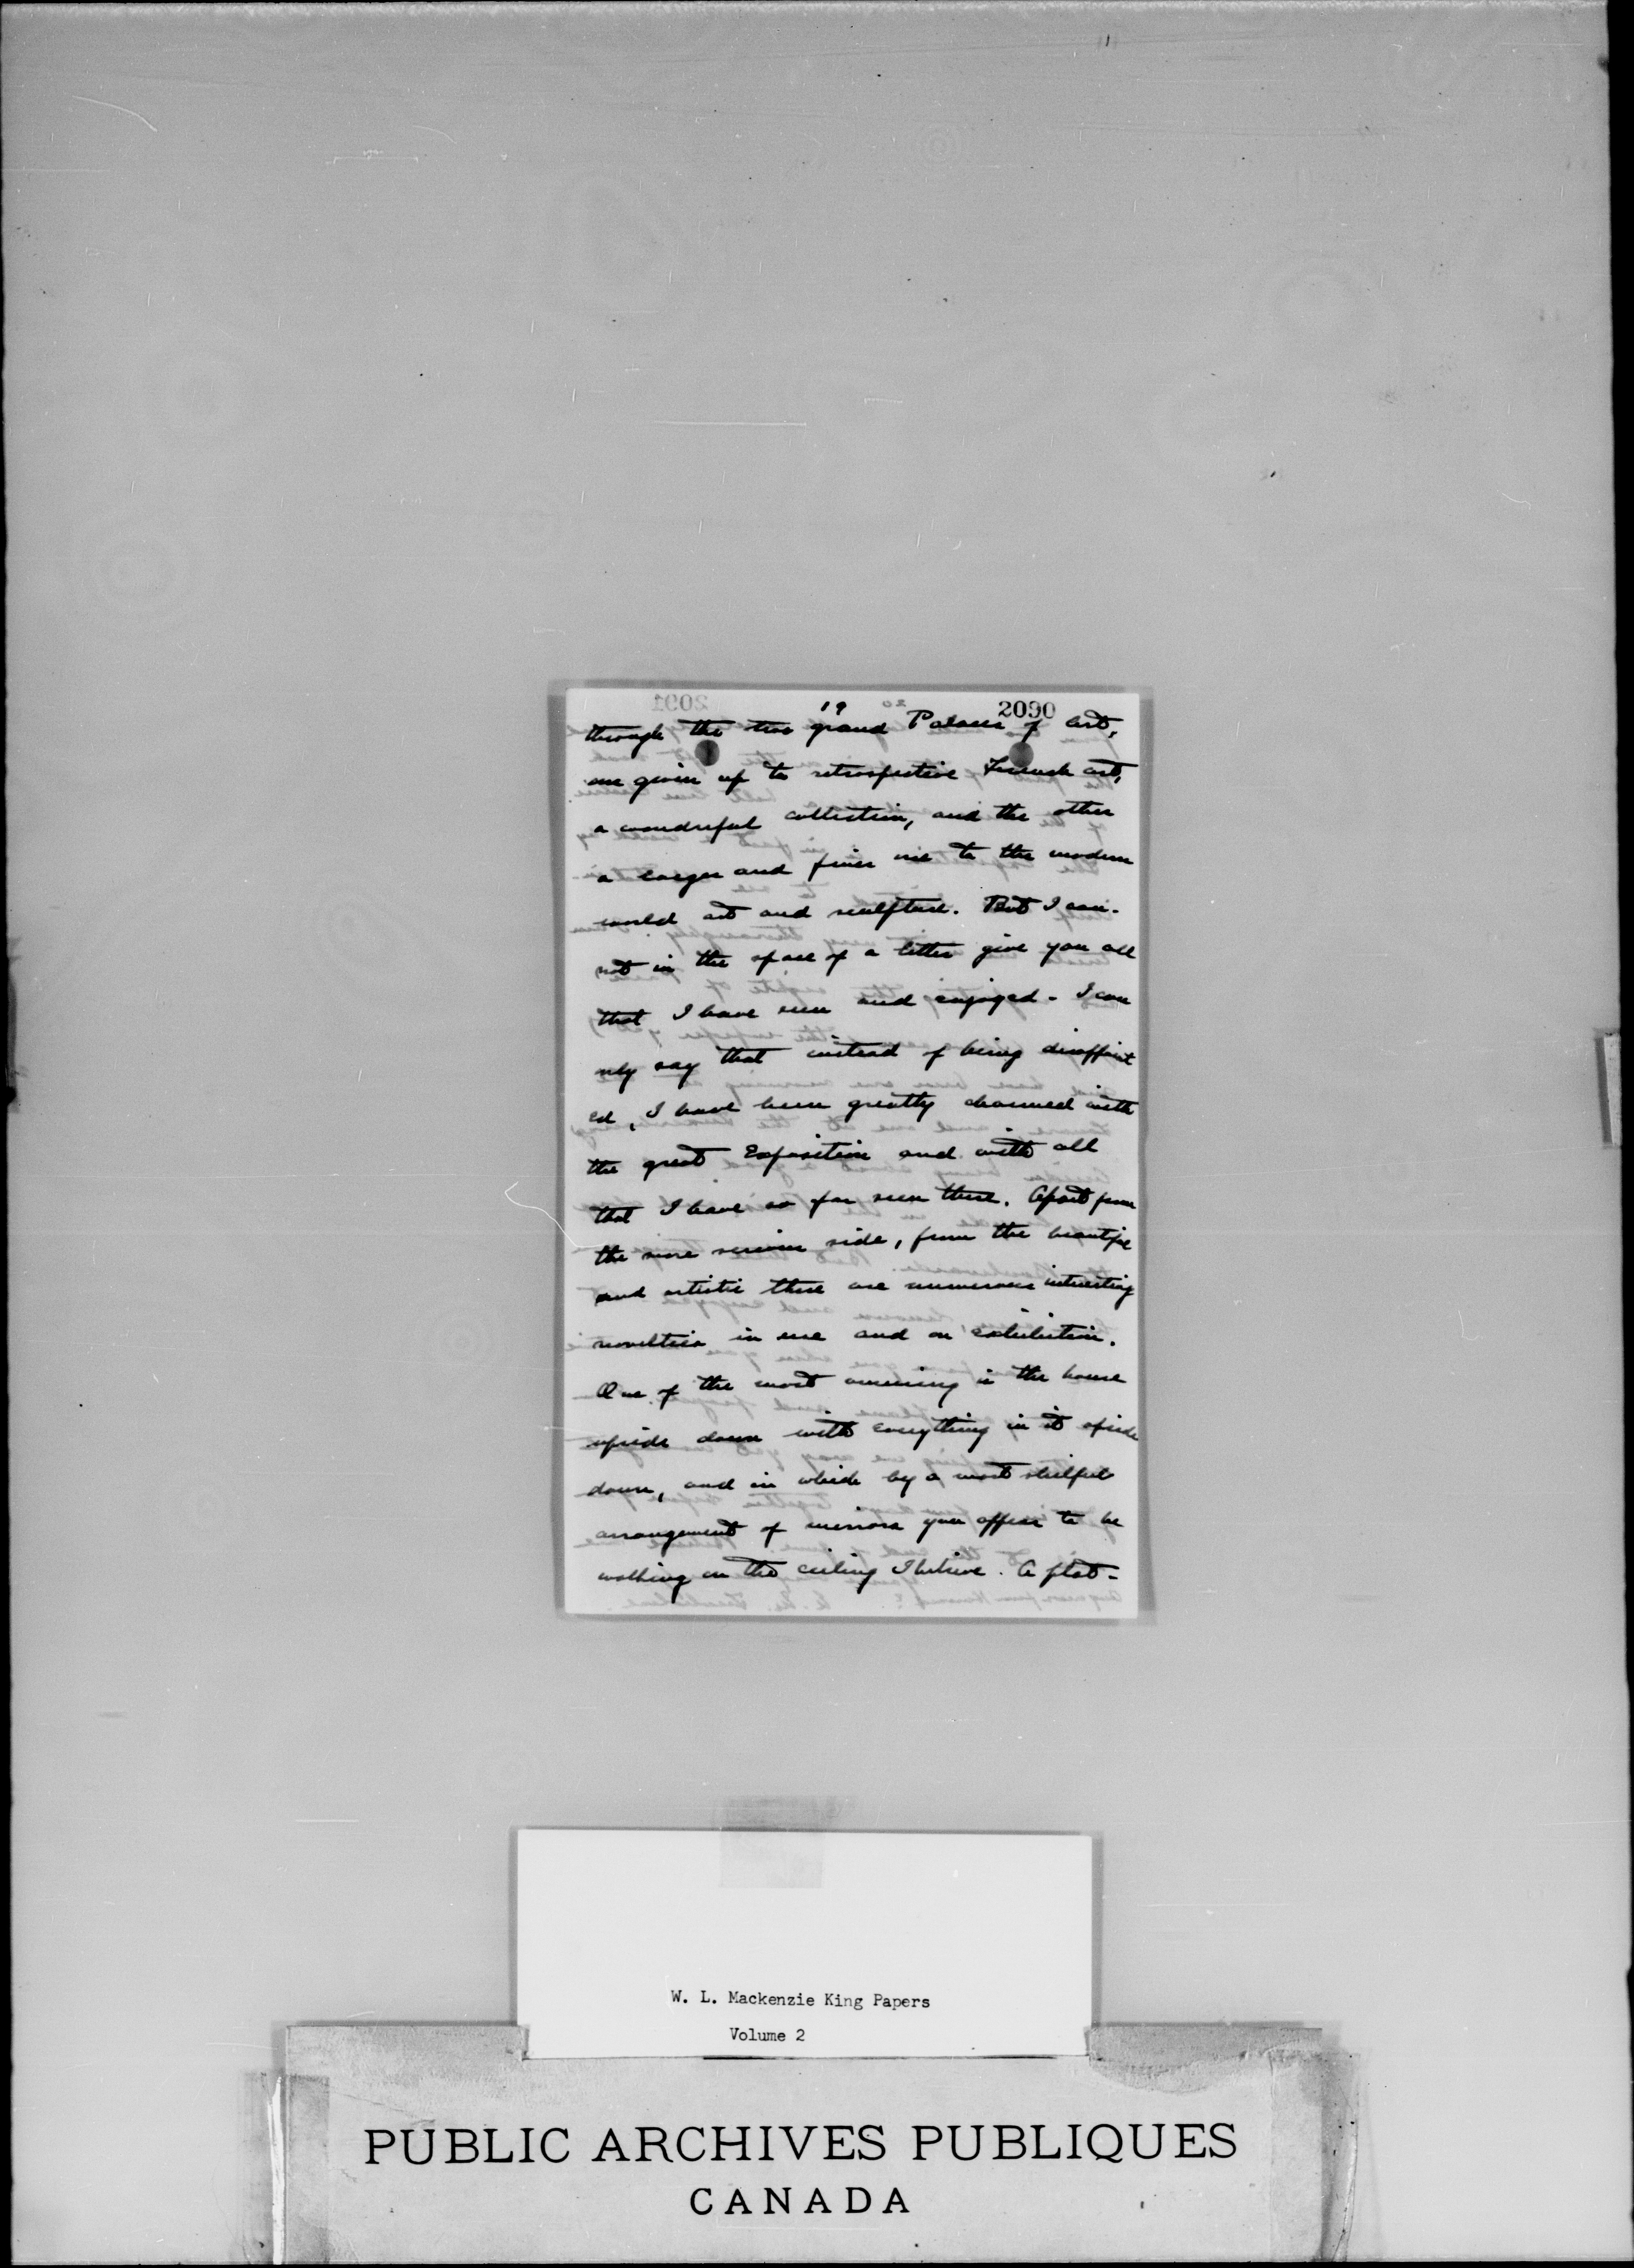 19
2090
through the two grand Palaces of Art,
one given up to retrospective French art,
a wonderful collection, and the other
a larger and finer one to the modern
world art and sculpture. But I can-
not in the space of a letter give you all
that I have seen and enjoyed - I can
only say that instead of being disappoint
ed, I have been greatly charmed with
the great Exposition and with all
that I have so far seen there. Apart from
the more serious side, from the beautiful
and artistic there are numerous interesting
novelties in use and on exhibition.
One of the most amusing is the house
upside down with everything in it upside
down, and in which by a most skilful
arrangement of mirrors you appear to be
walking on the ceiling I believe. A plat-
W. L. Mackenzie King Papers
Volume 2
PUBLIC ARCHIVES PUBLIQUES
CANADA